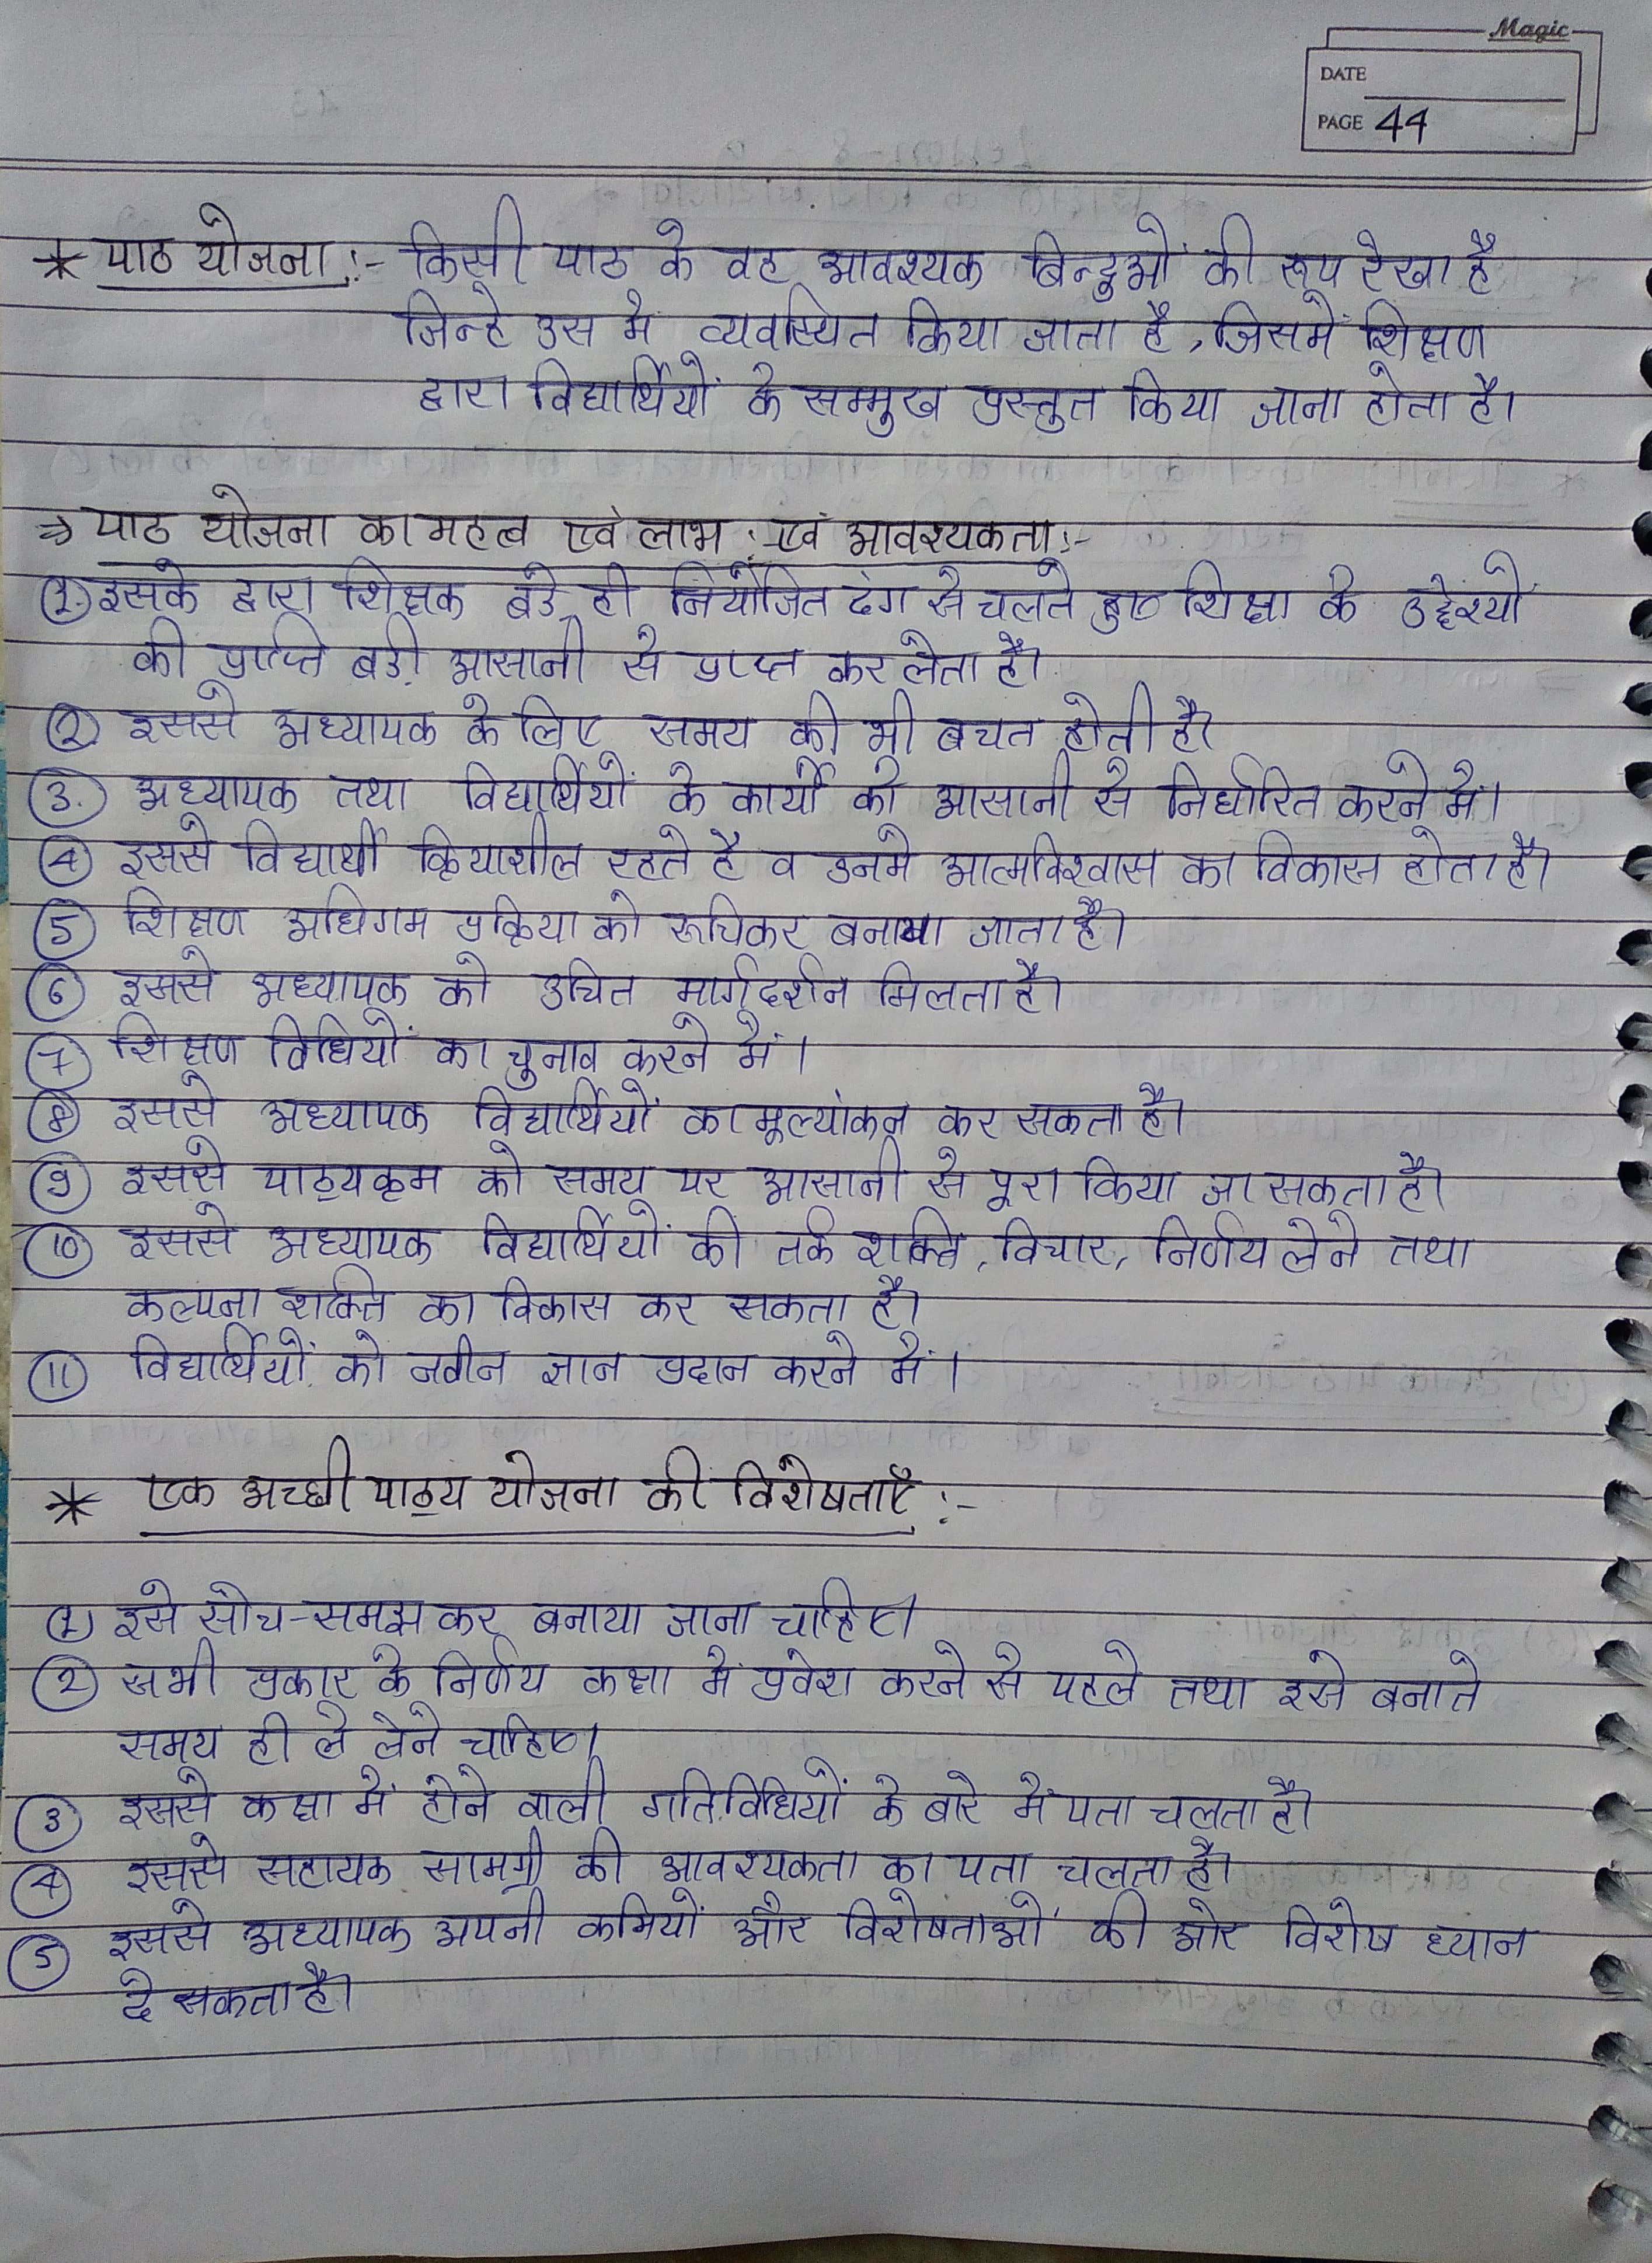 Magic
DATE
PAGE 44
* पाठ योजना :- किसी पाठ के वह आवश्यक बिन्दुओं की रूप रेखा है
जिन्हे उस मे व्यवस्थित किया जाता है, जिसमें शिक्षण
द्वारा विद्यार्थियों के सम्मुख प्रस्तुत किया जाना होता है।
→ पाठ योजना का महत्व एवं लाभ : एवं आवश्यकता :-
① इसके द्वारा शिक्षक बडे ही नियोजित ढंग से चलते हुए शिक्षा के उद्देश्यों
की प्राप्ति बडी आसानी से प्राप्त कर लेता है।
② इससे अध्यापक के लिए समय की भी बचत होती है।
③ अध्यापक तथा विद्यार्थियों के कार्यो को आसानी से निर्धारित करने मे।
④ इससे विद्यार्थी क्रियाशील रहते है व उनमे आत्मविश्वास का विकास होता है।
⑤ शिक्षण अधिगम प्रक्रिया को रूचिकर बनाया जाता है।
⑥ इससे अध्यापक को उचित मार्गदर्शन मिलता है।
⑦ शिक्षण विधियों का चुनाव करने में।
⑧ इससे अध्यापक विद्यार्थियों का मूल्यांकन कर सकता है।
⑨ इससे पाठ्यक्रम को समय पर आसानी से पूरा किया जा सकता है।
⑩ इससे अध्यापक विद्यार्थियों की तर्क शक्ति, विचार, निर्णय लेने तथा
कल्पना शक्ति का विकास कर सकता है।
⑪ विद्यार्थियों को नवीन ज्ञान प्रदान करने में।
* एक अच्छी पाठ्य योजना की विशेषताएँ :-
① इसे सोच-समझ कर बनाया जाना चाहिए।
② सभी प्रकार के निर्णय कक्षा में प्रवेश करने से पहले तथा इसे बनाते
समय ही ले लेने चाहिए।
③ इससे कक्षा में होने वाली गतिविधियों के बारे में पता चलता है।
④ इससे सहायक सामग्री की आवश्यकता का पता चलता है।
⑤ इससे अध्यापक अपनी कमियों और विशेषताओं की ओर विशेष ध्यान
दे सकता है।